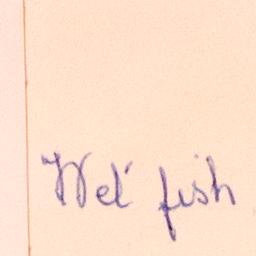 Wet fish